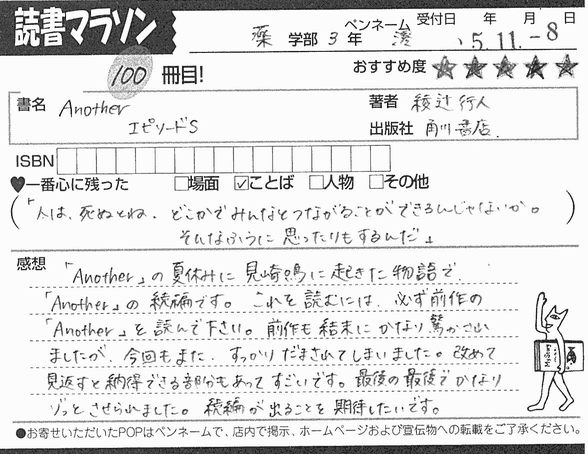 読書マラソン
薬 学部 3 年 ペンネーム 澪 受付日 年 月 日
'15.11.-8
100 冊目! おすすめ度 ★★★★★
書名 Another 著者 綾辻行人
エピソードS 出版社 角川書店.
ISBN
♥一番心に残った □場面 ☑ことば □人物 □その他
(「人は、死ぬとね、どこかでみんなとつながることができるんじゃないか。
そんなふうに思ったりもするんだ」)
感想 「Another」の夏休みに見崎鳴に起きた物語で、
「Another」の続編です。これを読むには、必ず前作の
「Another」を読んで下さい。前作も結末にかなり驚かされ
ましたが、今回もまた、すっかりだまされてしまいました。改めて
見返すと納得できる部分もあってすごいです。最後の最後でかなり
ゾッとさせられました。続編が出ることを期待したいです。
●お寄せいただいたPOPはペンネームで、店内で掲示、ホームページおよび宣伝物への転載をご了承ください。